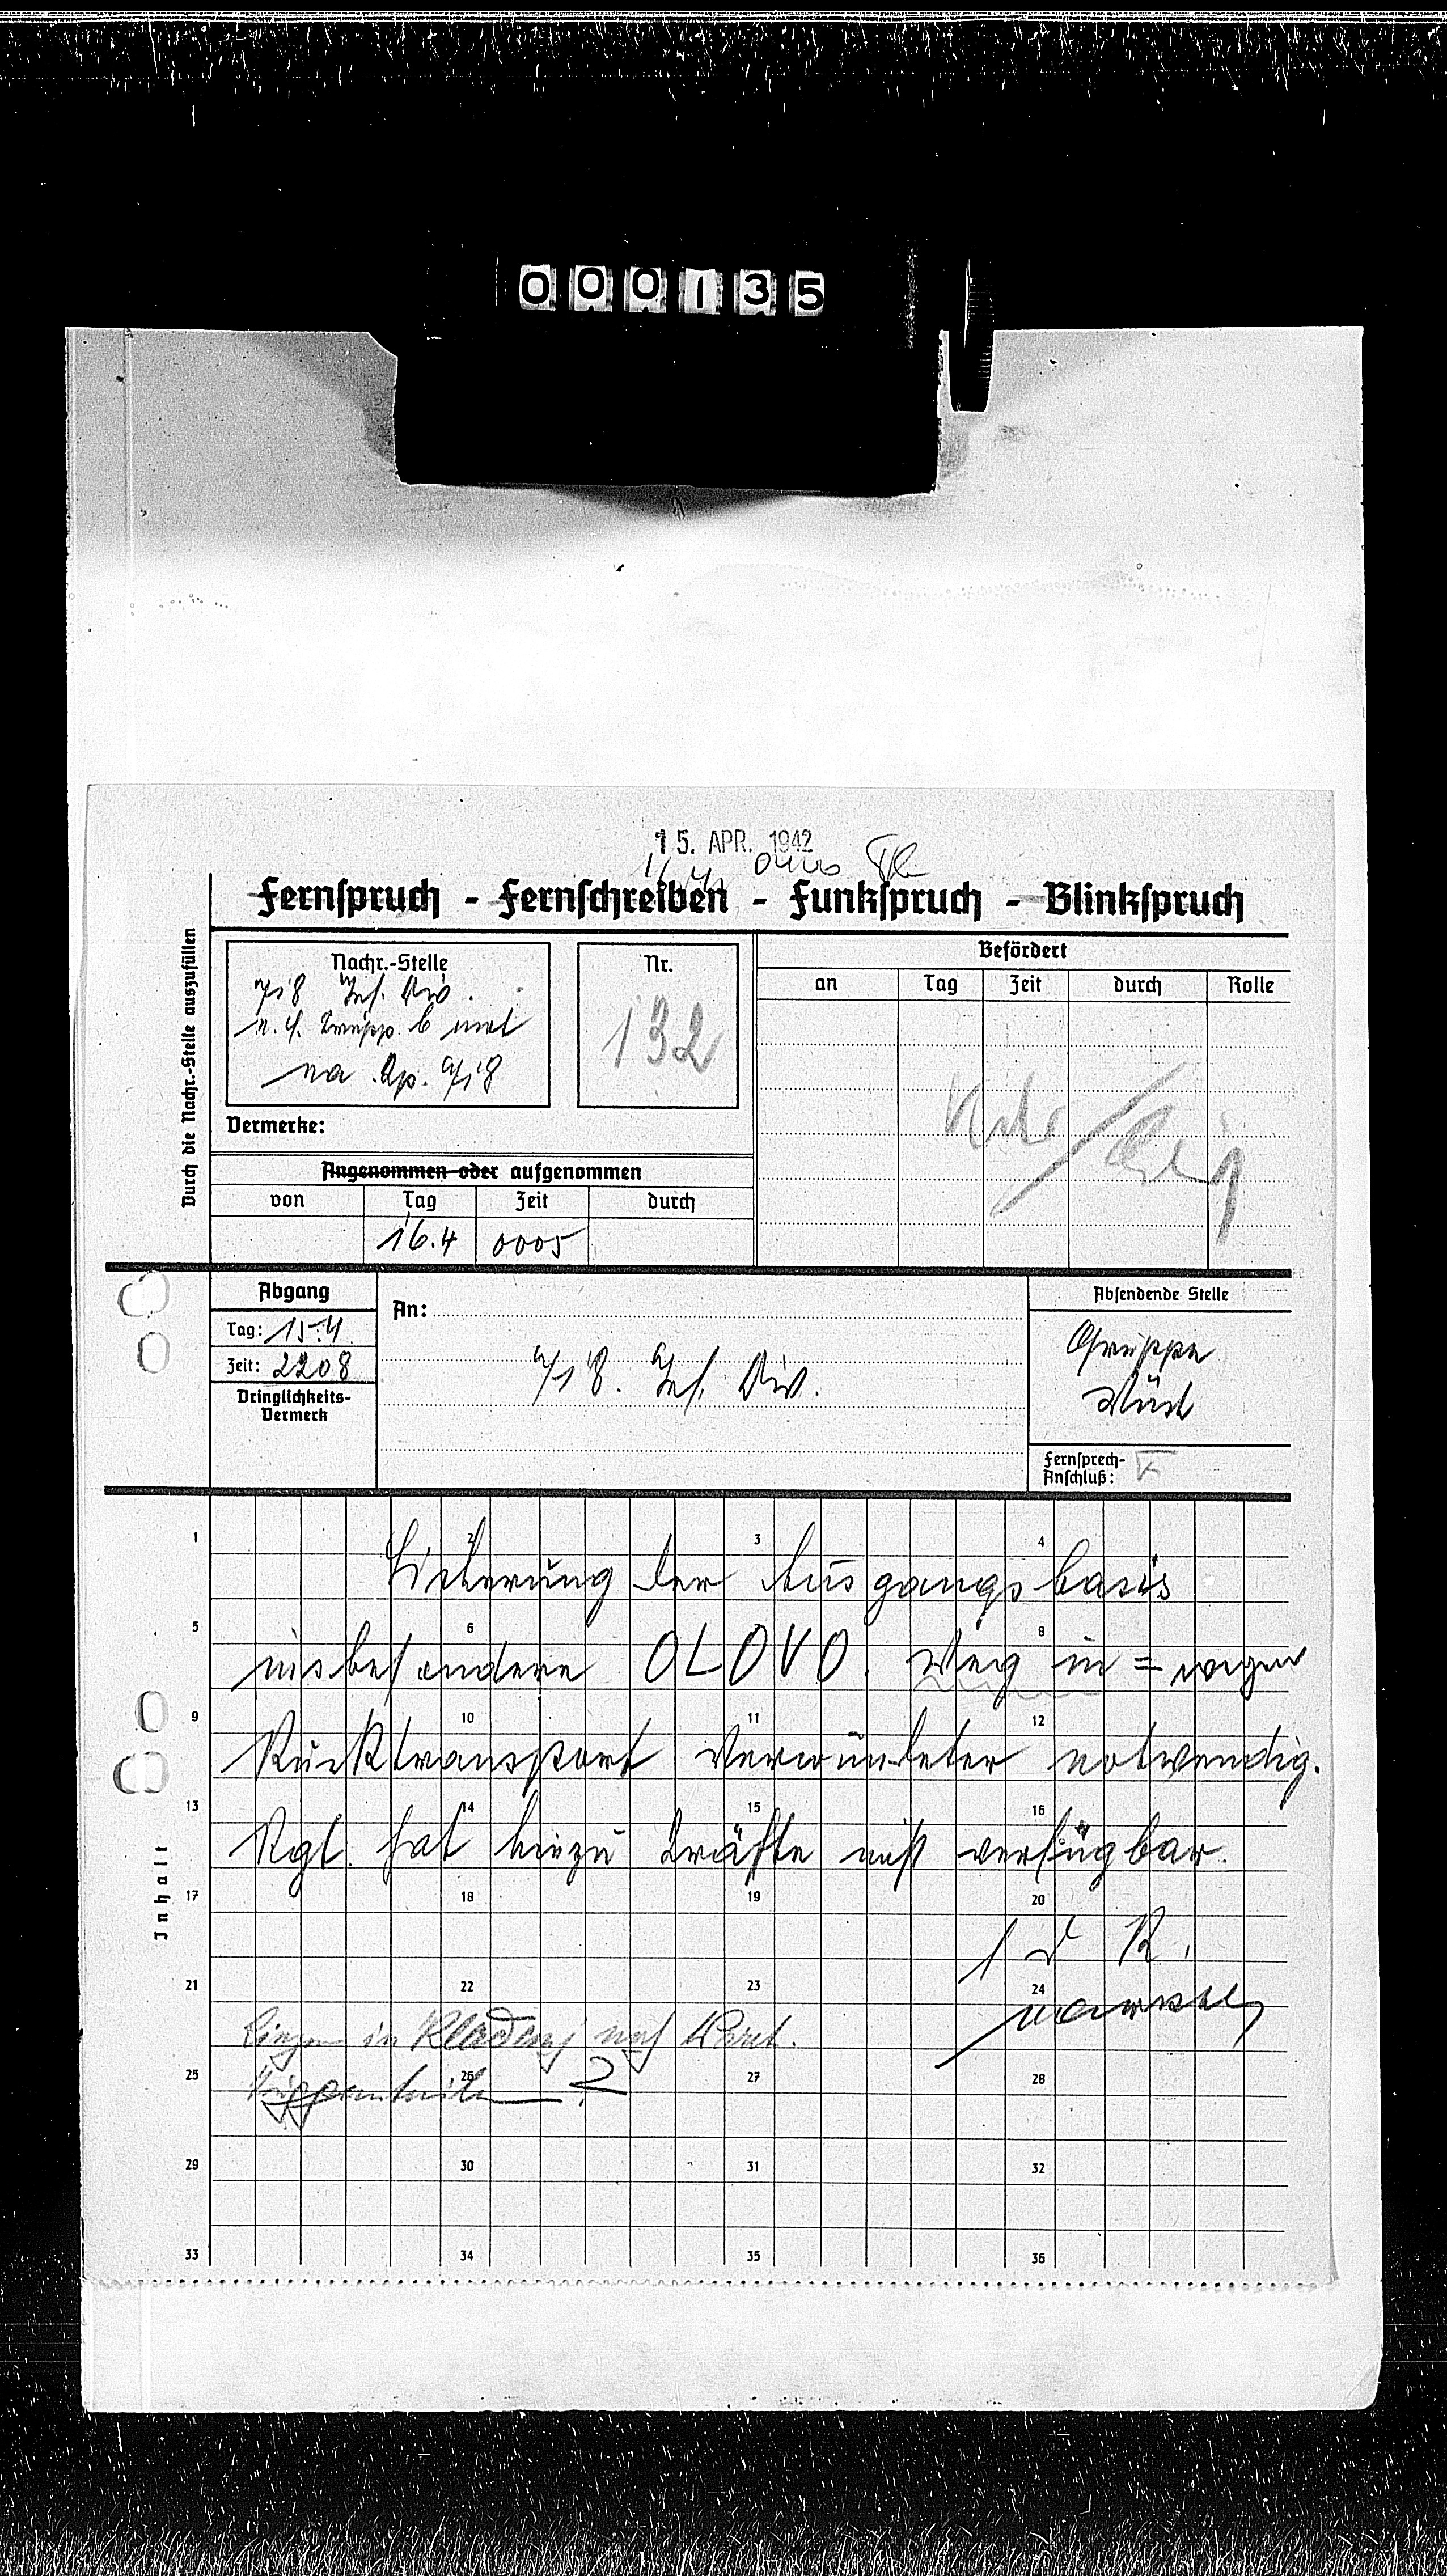 000135
15. APR. 1942
Fernspruch - Fernschreiben - Funkspruch - Blinkspruch
Durch die Nachr.-Stelle auszufüllen
Nachr.-Stelle
718 Inf. Div.
na. Kp. 718
Nr.
132
Vermerke:
Angenommen oder aufgenommen
von Tag Zeit durch
16.4 0005
Befördert
an Tag Zeit durch Rolle
Abgang
Tag: 15.4
Zeit: 2208
Dringlichkeits-
Vermerk
An:
718. Inf. Div.
Absendende Stelle
Gruppe
Wüst
Fernsprech-
Anschluß:
Inhalt
1 2 3 4
Sicherung der Ausgangsbasis
5 6 8
insbesondere OLOVO. Weg in = wegen
9 10 11 12
Rücktransport Verwundeter notwendig.
13 14 15 16
Rgt. hat hiezu Kräfte nicht verfügbar.
17 18 19 20
f d R.
21 22 23 24
in Kladanj noch
25 26 27 28
29 30 31 32
33 34 35 36